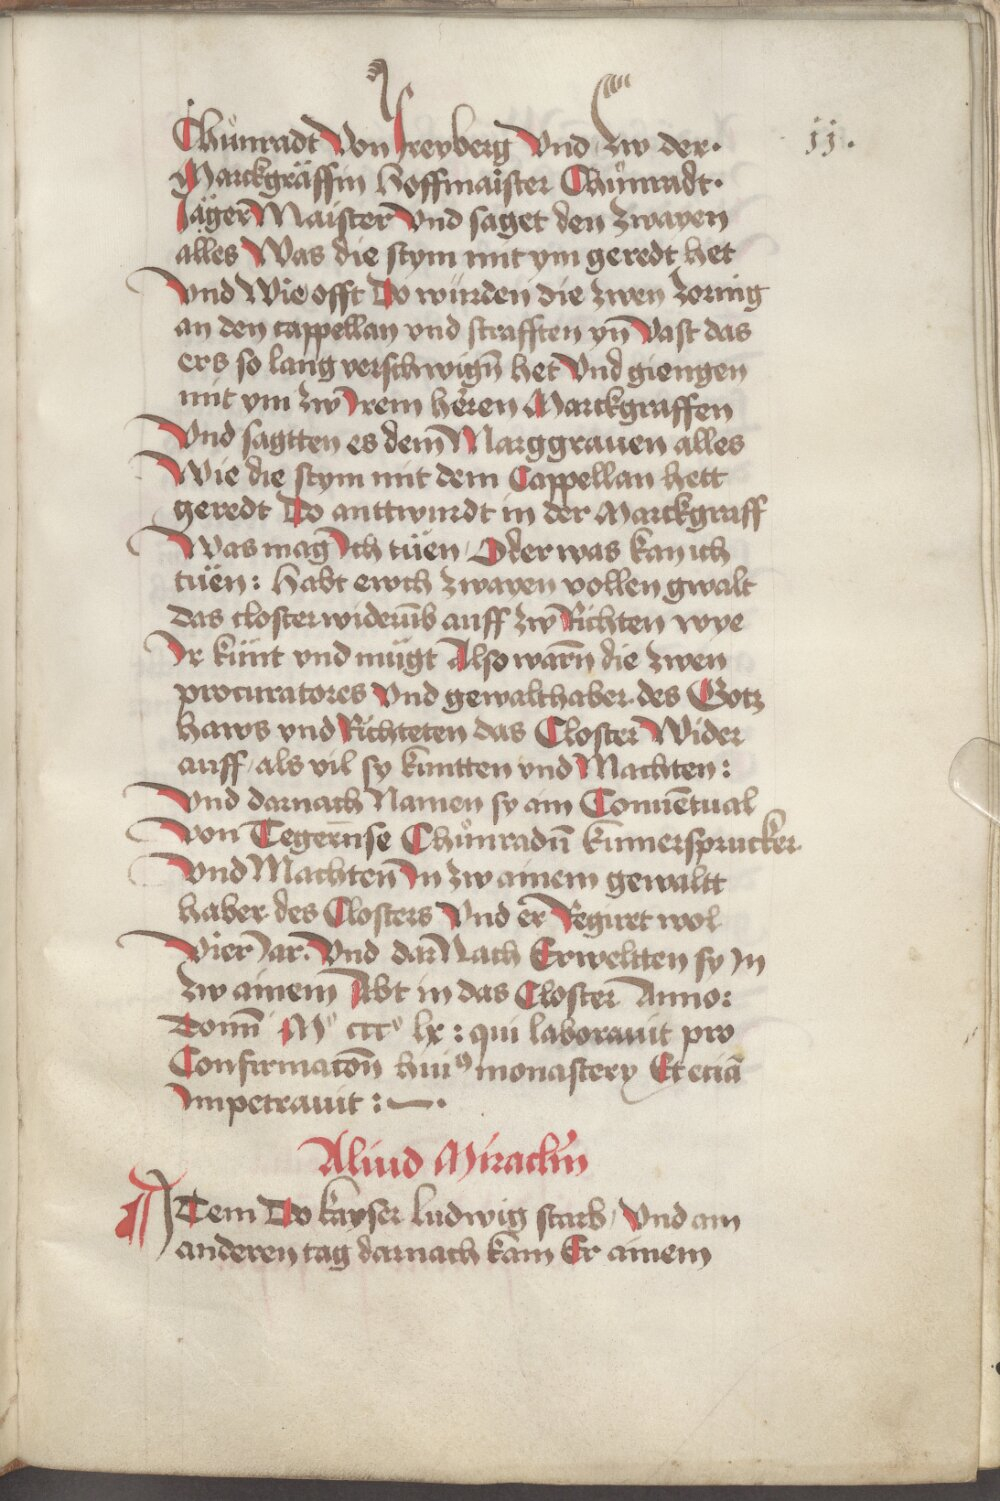 jj.
Chůnradt Von Freyberg Vnd zw der.
Marckgräffin hoffmaister Chůnradt.
Jäger Maister Vnd saget den zwayen
alles Was die stym mit ym geredt het
Vnd Wie offt Do würden die zwen zornig
an den cappellan vnd strafften yn̄ Vast das
ers so lang verschwign̄ het Vnd giengen
mit ym zw Irem heren Marckgraffen
Vnd sagtten es dem Marggrauen alles
Wie die stym mit dem Cappellan hett
geredt Do anttwurdt in der Marckgraff
Was mag Ich tüen / Oder was kan ich
tüen: habt ewch zwayen vollen gwalt
das closter widerūb auff zw Richten wye
Ir künt vnd mügt Also warn̄ die zwen
procuratores Vnd gewalthaber des Gotz
haws vnd Richteten das Closter Wider
auff / als vil sy kuntten vnd Machten:
Vnd darnach Namen sy ain Conuētual
Von Tegern̄se Chůnradū kumersprucker
Vnd Machten In zw ainem gewaltt
haber des Closters Vnd er Regirt wol
Vier Jar. Vnd dar Nach Erweltten sy In
zw ainem Abt in das Closter Anno:
Domī Mº cccº lx: qui laborauit pro
Confirmacōn̄ huiꝰ monastery Et eciā
Impetrauit:
Aliud Miraclm̄
ITem Do kayser ludwig starb / Vnd am
anderen tag darnach kam Er ainem